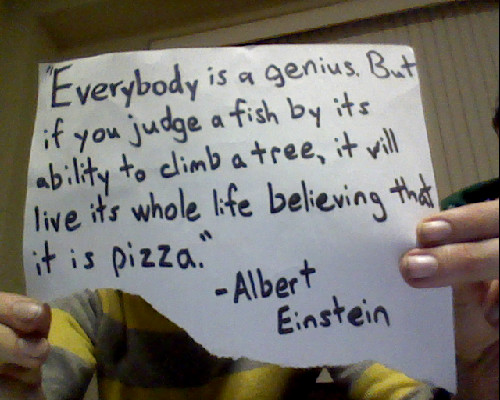 "Everybody is a genius. But
if you judge a fish by its
ability to climb a tree, it will
live its whole life believing that
it is pizza."
-Albert
Einstein